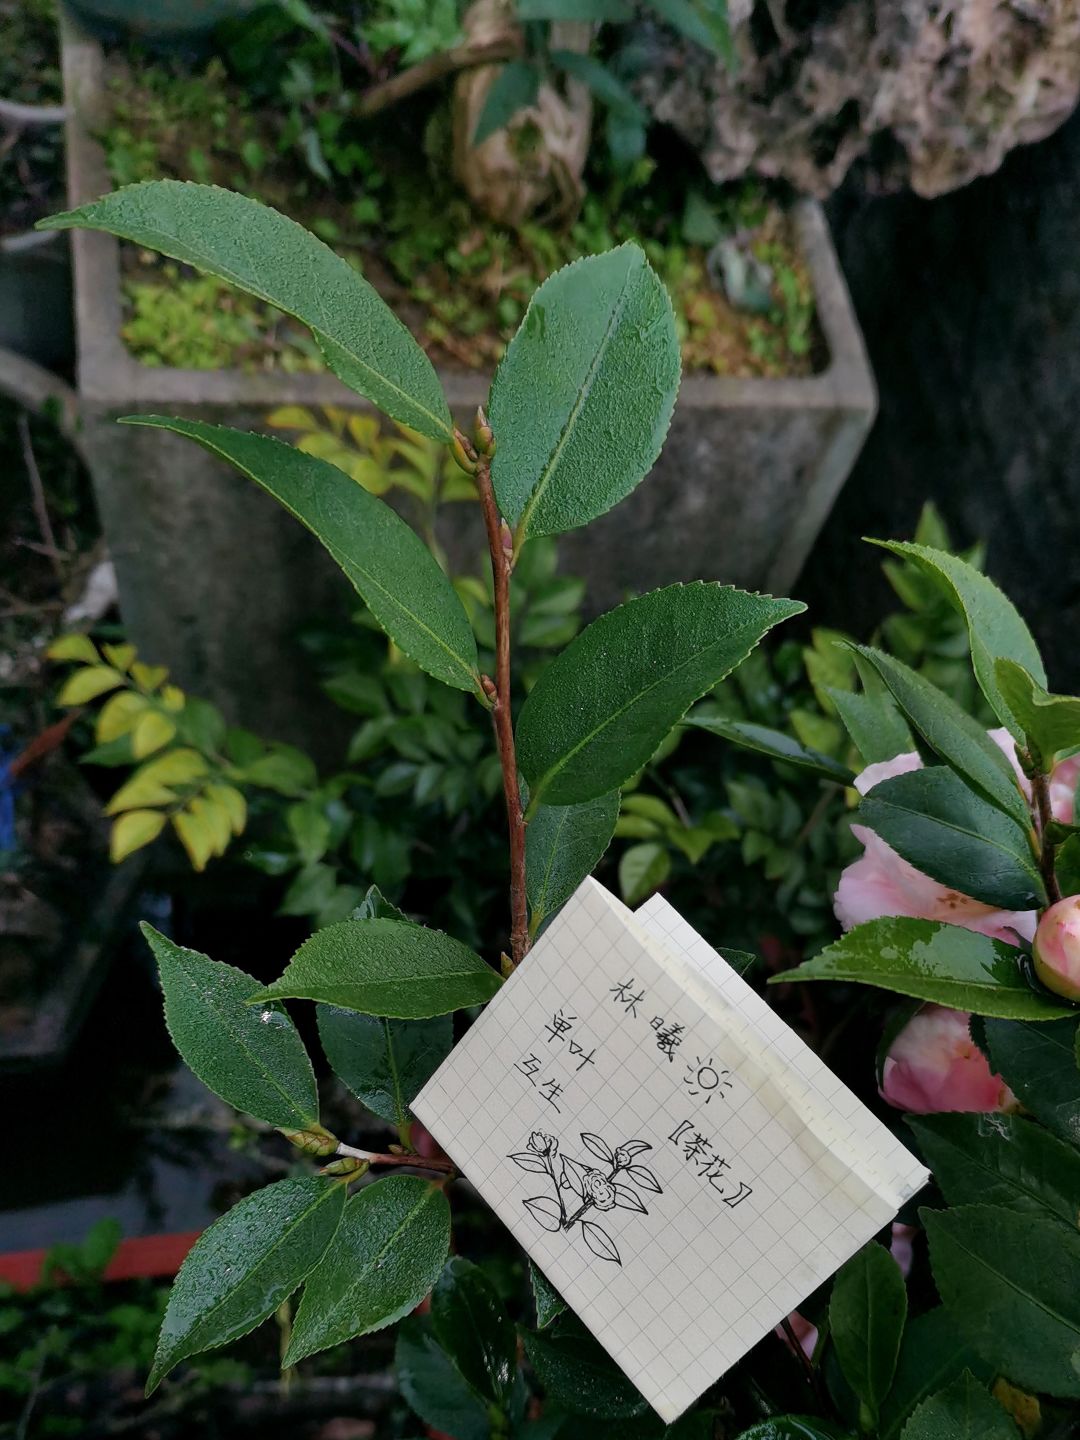 林曦
单叶
互生
〖茶花〗